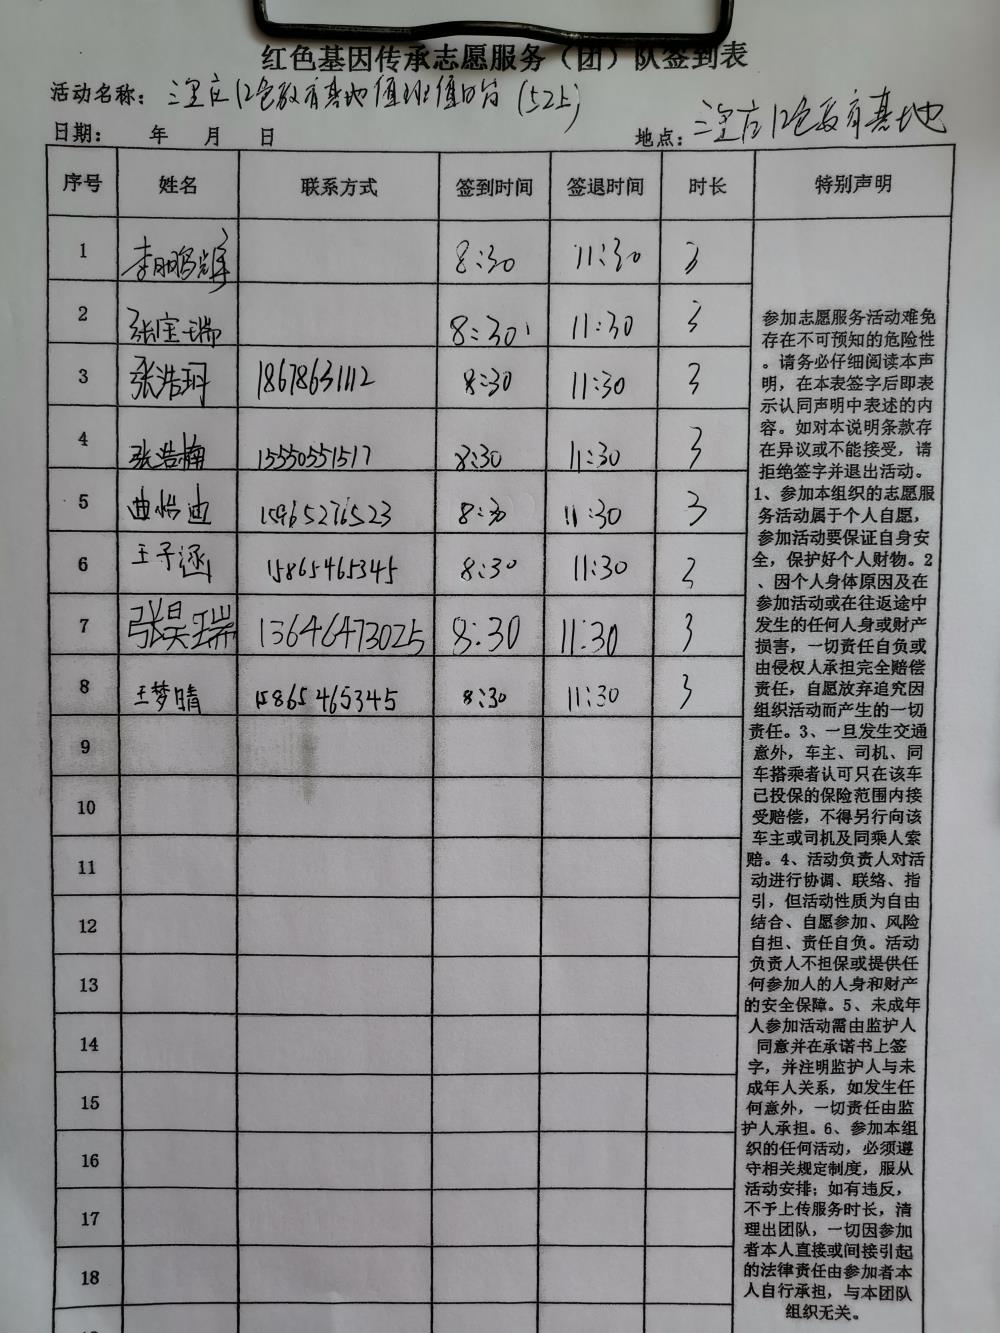 红色基因传承志愿服务（团）队签到表
活动名称：三里庄红色教育基地值班值日岗（52上）
日期： 年 月 日 地点：三里庄红色教育基地
序号 姓名 联系方式 签到时间 签退时间 时长 特别声明
1 李鹏辉 8:30 11:30 3
2 张宝瑞 8:30 11:30 3
3 张浩珂 18678631112 8:30 11:30 3
4 张浩楠 15550551517 8:30 11:30 3
5 曲怡迪 15965276523 8:30 11:30 3
6 王子涵 15865465345 8:30 11:30 3
7 张昊瑞 13646473025 8:30 11:30 3
8 王梦晴 15865465345 8:30 11:30 3
9
10
11
12
13
14
15
16
17
18
参加志愿服务活动难免
存在不可预知的危险性
。请务必仔细阅读本声
明，在本表签字后即表
示认同声明中表述的内
容。如对本说明条款存
在异议或不能接受，请
拒绝签字并退出活动。
1、参加本组织的志愿服
务活动属于个人自愿，
参加活动要保证自身安
全，保护好个人财物。2
、因个人身体原因及在
参加活动或在往返途中
发生的任何人身或财产
损害，一切责任自负或
由侵权人承担完全赔偿
责任，自愿放弃追究因
组织活动而产生的一切
责任。3、一旦发生交通
意外，车主、司机、同
车搭乘者认可只在该车
已投保的保险范围内接
受赔偿，不得另行向该
车主或司机及同乘人索
赔。4、活动负责人对活
动进行协调、联络、指
引，但活动性质为自由
结合、自愿参加、风险
自担、责任自负。活动
负责人不担保或提供任
何参加人的人身和财产
的安全保障。5、未成年
人参加活动需由监护人
同意并在承诺书上签
字，并注明监护人与未
成年人关系，如发生任
何意外，一切责任由监
护人承担。6、参加本组
织的任何活动，必须遵
守相关规定制度，服从
活动安排；如有违反，
不予上传服务时长，清
理出团队，一切因参加
者本人直接或间接引起
的法律责任由参加者本
人自行承担，与本团队
组织无关。